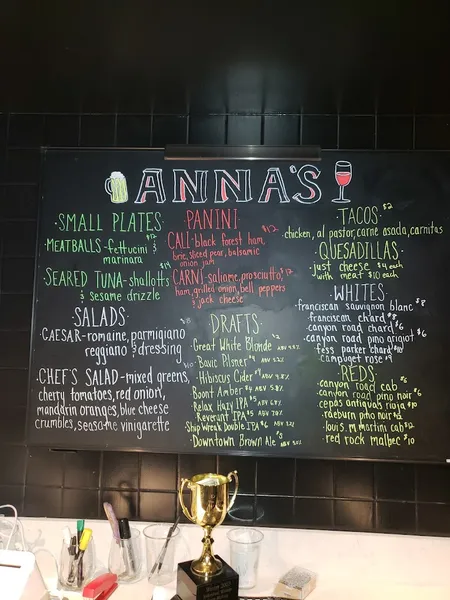 ANNA'S
·SMALL PLATES·
·MEATBALLS-fettucini & $12
marinara
·SEARED TUNA-shallots $14
& sesame drizzle
·SALADS·
·CAESAR-romaine, parmigiano $8
reggiano & dressing
·CHEF'S SALAD-mixed greens, $10
cherry tomatoes, red onion,
mandarin oranges, blue cheese
crumbles, seasome vinigarette
·PANINI·
·CALI-black forest ham, $12
brie, sliced pear, balsamic
onion jam
·CARNI-saliame, prosciutto, $12
ham, grilled onion, bell peppers
& jack cheese
·DRAFTS·
·Great White Blonde
·Bavic Pilsner
·Hibiscus Cider
·Boont Amber
·Relax Hazy IPA
·Reverent IPA
·Ship Wreck Double IPA
·Downtown Brown Ale
·TACOS· $2
chicken, al pastor, carne asada, carnitas
·QUESADILLAS·
·just cheese $4 each
·with meat $10 each
·WHITES·
·franciscan sauvignon blanc $8
·franciscan chard
·canyon road chard $6
·canyon road pino grigiot $6
·fess parker chard
·campuget rose
·REDS·
·canyon road cab $6
·canyon road pino noir $6
·cepas antiguas rioja $10
·raeburn pino noir
·louis m martini cab $12
·red rock malbec $10